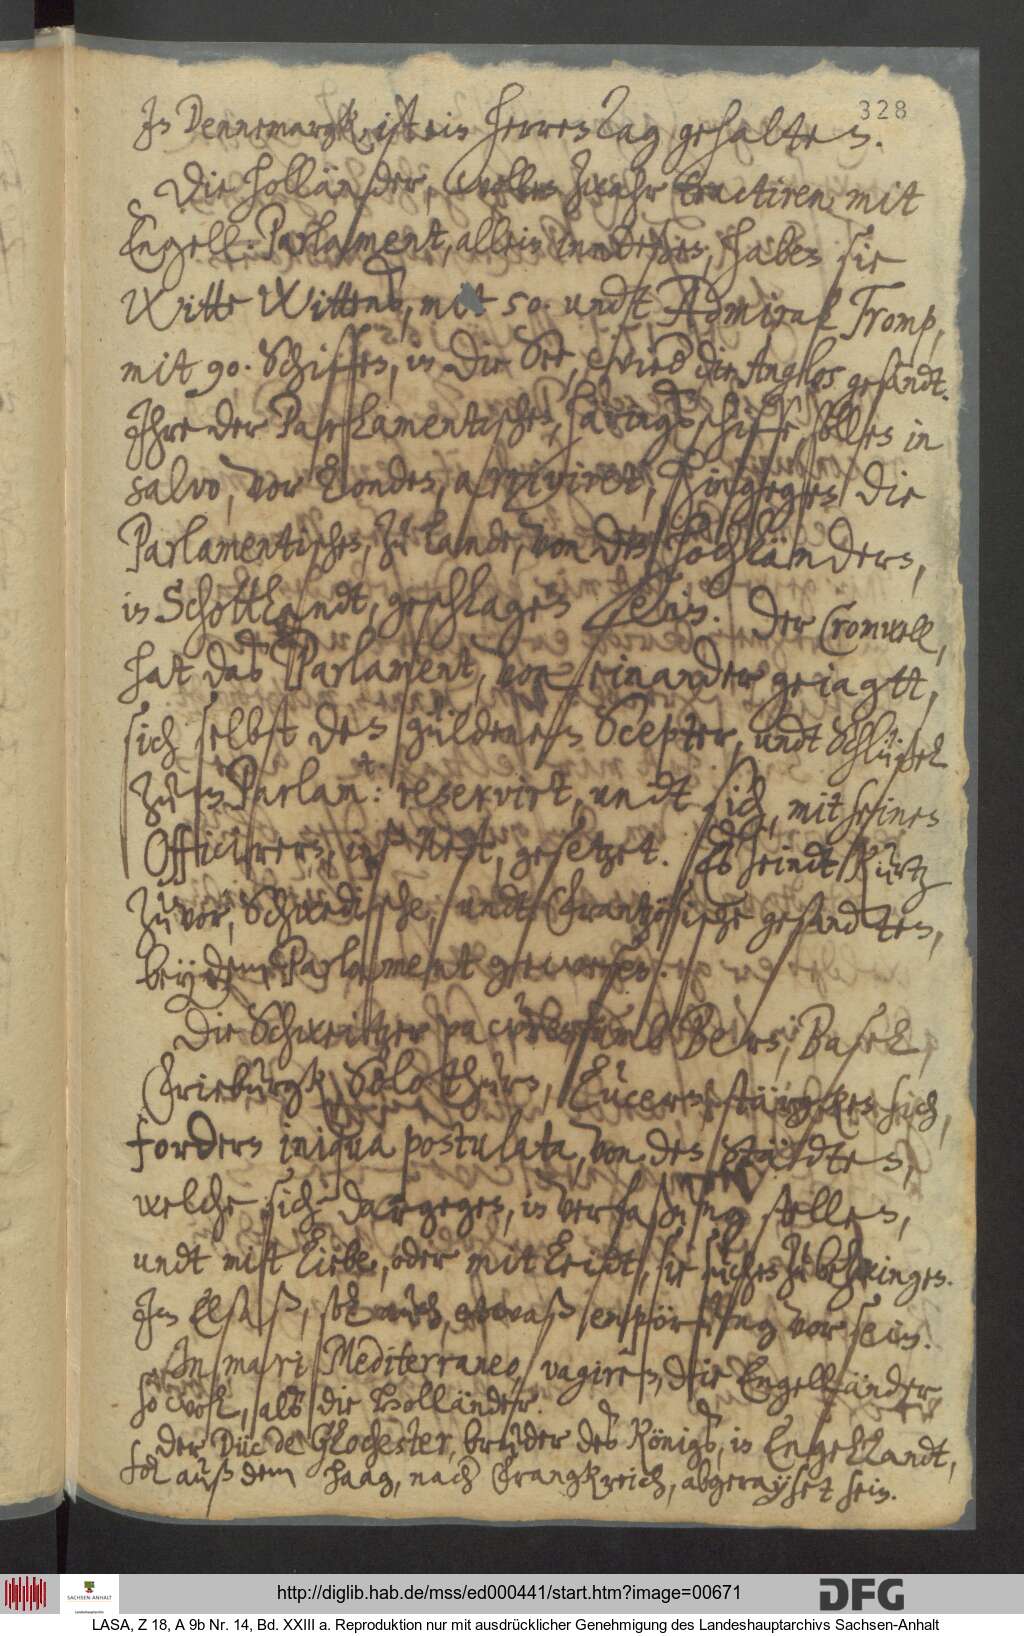 328
In Dennemargk ist ein herren Tag gehalten.
Die Holländer, wollen zwahr tractiren mit
Engell: Parlament, allein inndeßen, haben sie
Witte Wittens, mit 50. undt Admiral Tromp,
mit 90. Schiffen, in die See, wied die Anglos gesandt.
Ihre der Parlamentischen, häringsschiffe, sollen in
salvo, vor Londen, arriviret, hingegen die
Parlamentischen, zu Lande, von den Hochländern,
in Schottlandt, geschlagen sein. Der Cromwell,
hat das Parlament, von einander geiagtt,
sich selbst den güldenen Scepter, undt Schlüßel
zum Parlam: reservirt, undt sich, mit seinen
Officirern, inß Nest, gesetzet. Es seindt kurtz
zuvor, Schwedische, undt Frantzösische gesandten,
beÿ dem Parlament gewesen.
Die Schweitzer pawren umb Bern, Basel,
Frieburgk, Solothurn, Lucern, stärgken sich,
fordern iniqua postulata, von den Städten,
welche sich dargegen, in verfaßung stellen,
undt mit Liebe, oder mit Leidt, sie suchen zu bezwingen.
Im Elsaß, sol auch, etwaß empörung vor sein.
In mari Mediterraneo, vagiren, die Engelländer
so wol, alß die Holländer.
Der Duc de Glochester, bruder des Königs, in Engellandt,
sol auß dem Haag, nach Frangkreich, abgerayset sein.
http://diglib.hab.de/mss/ed000441/start.htm?image=00671
SACHSEN-ANHALT
Landeshauptarchiv
DFG
LASA, Z 18, A 9b Nr. 14, Bd. XXIII a. Reproduktion nur mit ausdrücklicher Genehmigung des Landeshauptarchivs Sachsen-Anhalt